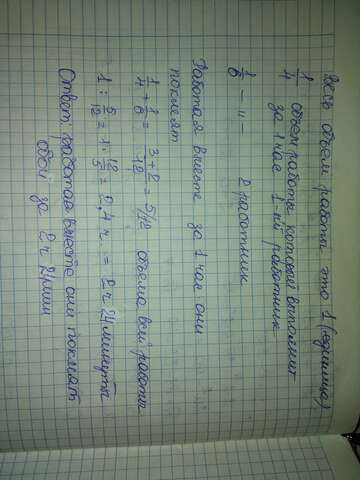 Весь объем работы это 1 (единица)
1/4 объем работы который выполнит
за 1 час 1-ый работник
1/6 – " – 2 работник
Работая вместе за 1 час они
поклеят
1/4 + 1/6 = 3+2/12 = 5/12 объема всей работы
1 : 5/12 = 1 · 12/5 = 2,4 ч. = 2 ч 24 минуты
Ответ: работая вместе они поклеят
обои за 2 ч 24 мин